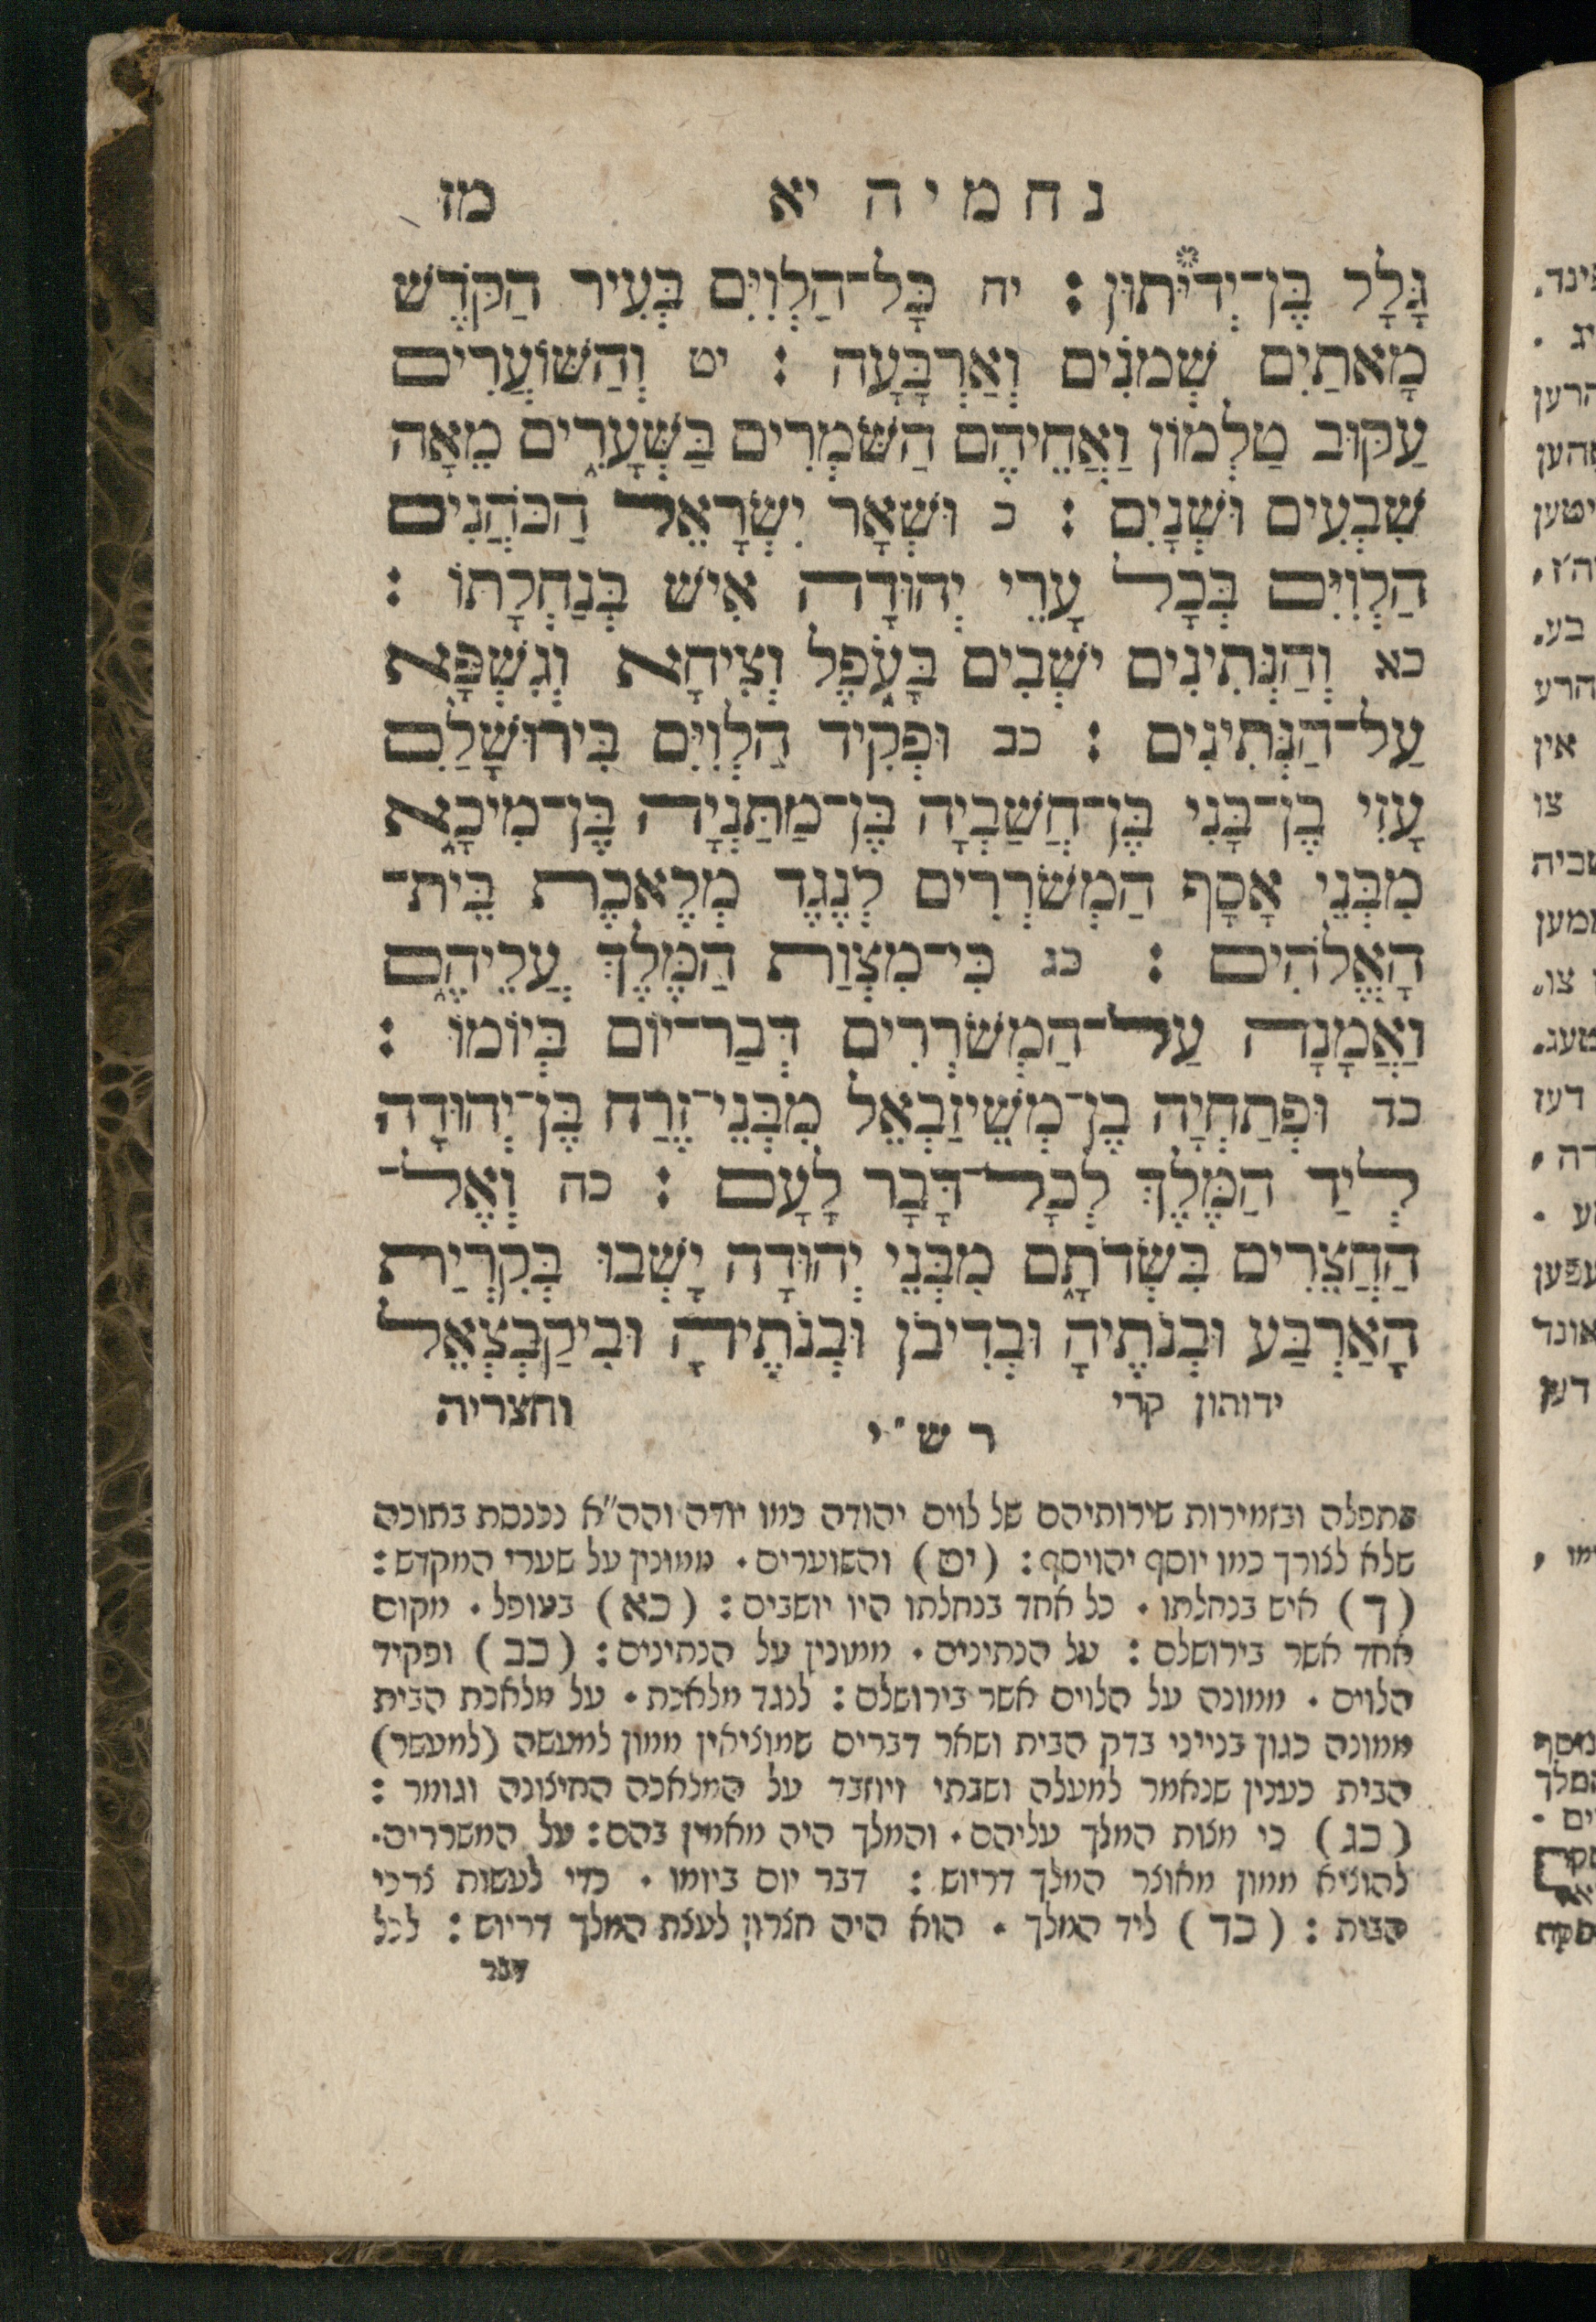 נחמיה יא מז
גָּלָל בֶּן־יְדִיתוּן : יח כָּל־הַלְוִיִּם בְּעִיר הַקֹּדֶשׁ
מָאתַיִם שְׁמֹנִים וְאַרְבָּעָה : יט וְהַשּׁוֹעֲרִים
עַקּוּב טַלְמוֹן וַאֲחֵיהֶם הַשֹּׁמְרִים בַּשְּׁעָרִים מֵאָה
שִׁבְעִים וּשְׁנָיִם : כ וּשְׁאָר יִשְׂרָאֵל הַכֹּהֲנִים
הַלְוִיִּם בְּכָל עָרֵי יְהוּדָה אִישׁ בְּנַחֲלָתוֹ :
כא וְהַנְּתִינִים יֹשְׁבִים בָּעֹפֶל וְצִיחָא וְגִשְׁפָּא
עַל־הַנְּתִינִים : כב וּפְקִיד הַלְוִיִּם בִּירוּשָׁלִַם
עֻזִּי בֶן־בָּנִי בֶּן־חֲשַׁבְיָה בֶּן־מַתַּנְיָה בֶּן־מִיכָא
מִבְּנֵי אָסָף הַמְשֹׁרְרִים לְנֶגֶד מְלֶאכֶת בֵּית־
הָאֱלֹהִים : כג כִּי־מִצְוַת הַמֶּלֶךְ עֲלֵיהֶם
וַאֲמָנָה עַל־הַמְשֹׁרְרִים דְּבַר־יוֹם בְּיוֹמוֹ :
כד וּפְתַחְיָה בֶּן־מְשֵׁיזַבְאֵל מִבְּנֵי־זֶרַח בֶּן־יְהוּדָה
לְיַד הַמֶּלֶךְ לְכָל־דָּבָר לָעָם : כה וְאֶל־
הַחֲצֵרִים בִּשְׂדֹתָם מִבְּנֵי יְהוּדָה יָשְׁבוּ בְּקִרְיַת
הָאַרְבַּע וּבְנֹתֶיהָ וּבְדִיבֹן וּבְנֹתֶיהָ וּבִיקַבְצְאֵל
ידותון קרי וחצריה
רש״י
בתפלה ובזמירות שירותיהם של לוים יהודה כמו יודה והה״א נכנסת בתוכה
שלא לצורך כמו יוסף יהויסף : (יט) והשוערים . ממונין על שערי המקדש :
(ך) איש בנחלתו . כל אחד בנחלתו היו יושבים : (כא) בעופל . מקום
אחד אשר בירושלם : על הנתינים . ממונין על הנתינים : (כב) ופקיד
הלוים . ממונה על הלוים אשר בירושלם : לנגד מלאכת . על מלאכת הבית
ממונה כגון בנייני בדק הבית ושאר דברים שמוציאין ממון למעשה (למעשר)
הבית כענין שנאמר למעלה ושבתי ויוזבד על המלאכה החיצונה וגומר :
(כג) כי מצות המלך עליהם . והמלך היה מאמין בהם : על המשררים .
להוציא ממון מאוצר המלך דריוש : דבר יום ביומו . כדי לעשות צרכי
הבית : (כד) ליד המלך . הוא היה חצרון לעצת המלך דריוש : לכל
דבר